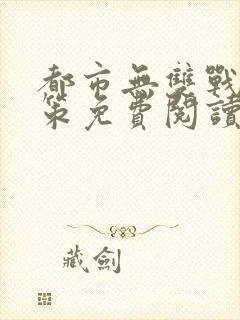 都市無雙戰
策免費閱讀
藏劍